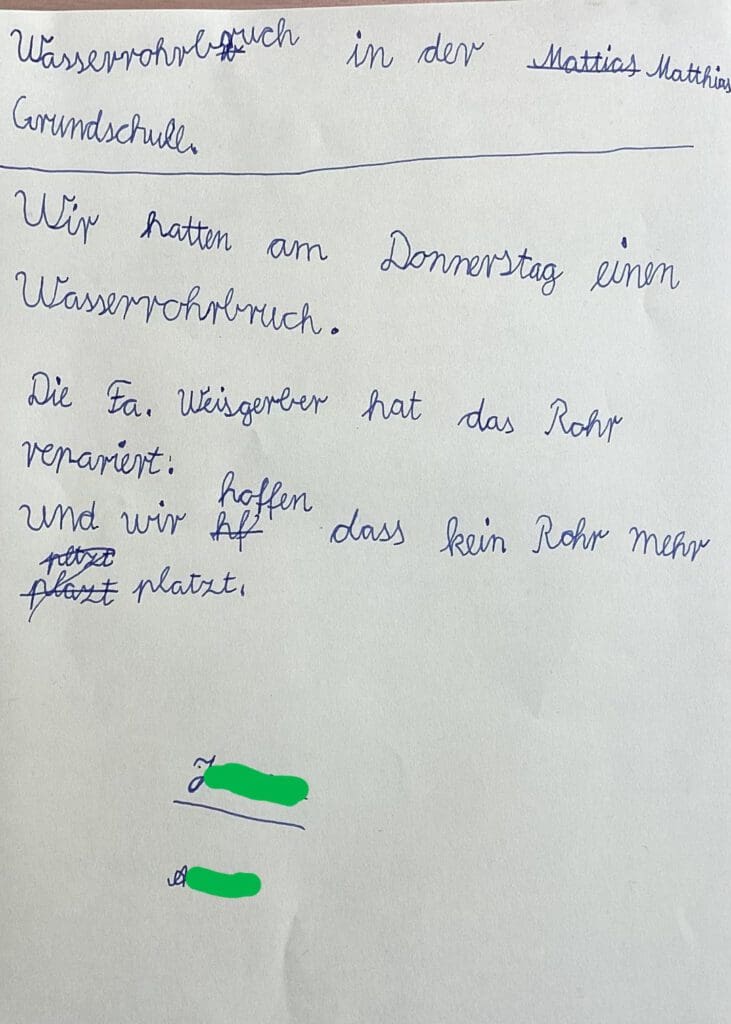 Wasserrohrbruch in der Mattias Matthias
Grundschule.
Wir hatten am Donnerstag einen
Wasserrohrbruch.
Die Fa. Weisgerber hat das Rohr
repariert:
hoffen
und wir hf dass kein Rohr mehr
pltzt
plazt platzt.
J
A